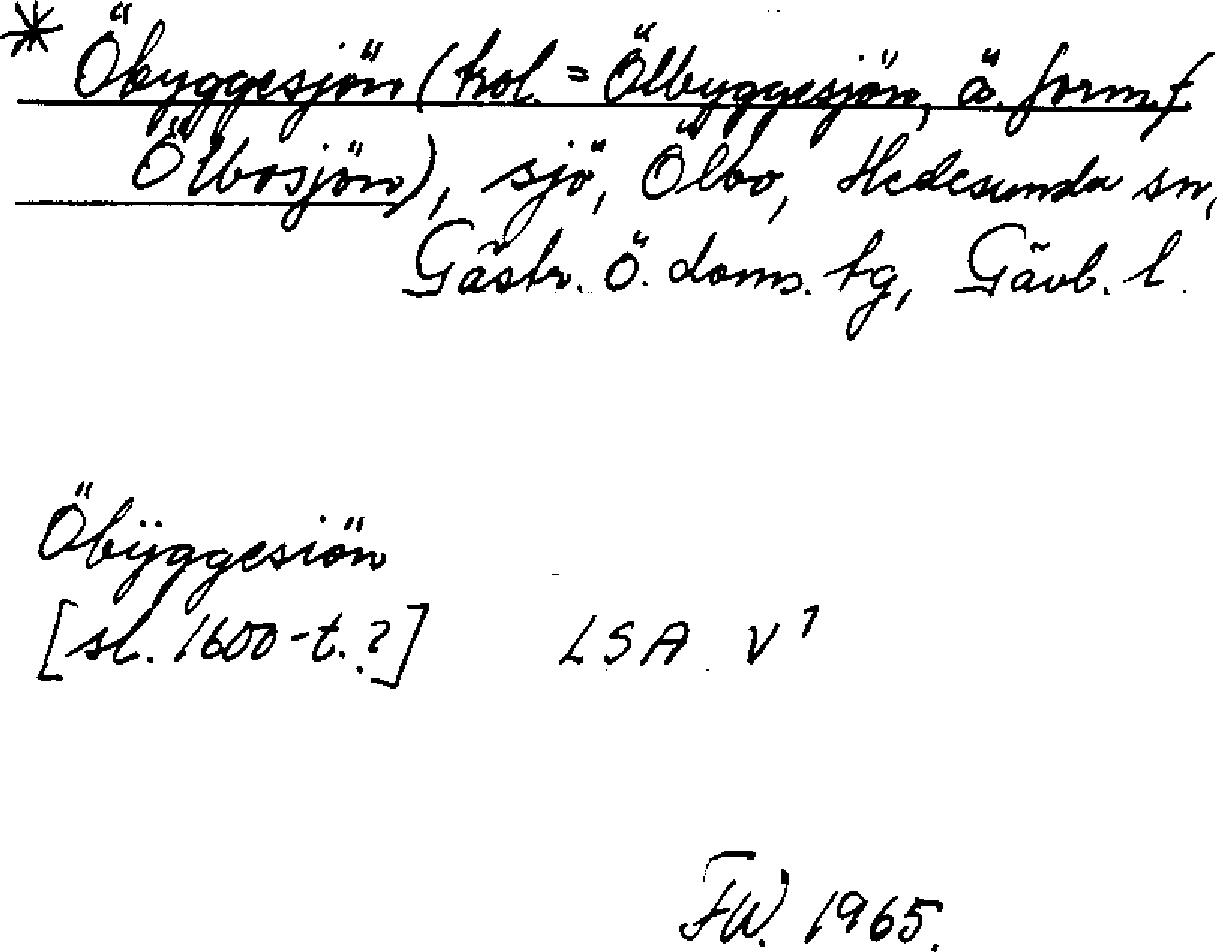 * Öbyggesjön (trol. = Ölbyggesjön, ä. form f.
Ölbosjön), sjö, Ölbo, Hedesunda sn,
Gästr. ö. doms. tg, Gävb. l.
Öbÿggesiön
[sl. 1600-t.?] LSA V1
FW. 1965.